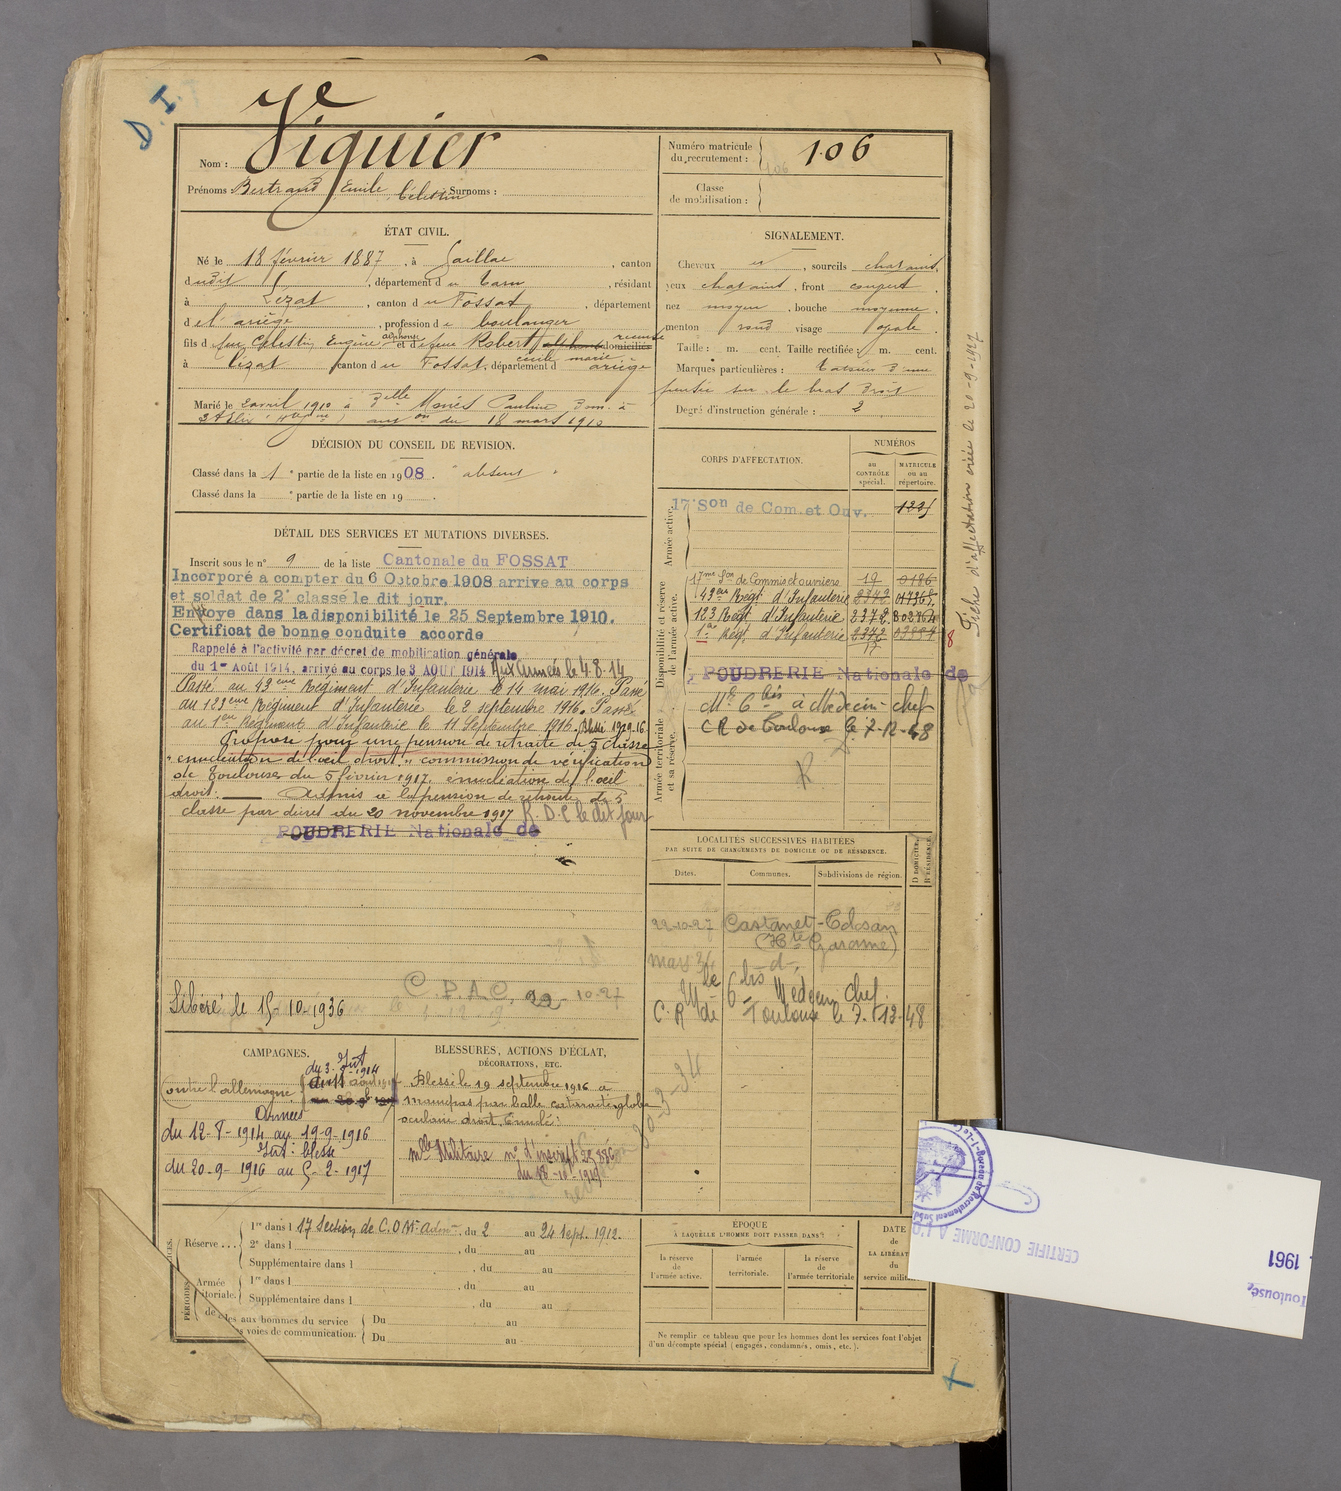 D. I.
Nom : Viguier
Prénoms Bertrand Emile Célestin Surnoms :
Numéro matricule
du recrutement : 106
106
Classe
de mobilisation :
ÉTAT CIVIL.
Né le 18 février 1887, à Gaillac, canton
dudit, département du Tarn, résidant
à Lézat, canton du Fossat, département
de l'ariège, profession de boulanger
fils de feu Célestin, Eugène alphonse et de feue Robert cécile marie domiciliés
à Lézat canton du Fossat, département d ariège
Marié le 2 avril 1910 à Delle Monié Pauline Dom. à
aut on du 18 mars 1910
SIGNALEMENT.
Cheveux et, sourcils chatains,
yeux chatains, front couvert,
nez moyen, bouche moyenne,
menton rond visage ovale.
Taille : m. cent. Taille rectifiée : m. cent.
Marques particulières : Tatoué d'une
pensée sur le bras droit
Degré d'instruction générale : 2
DÉCISION DU CONSEIL DE REVISION.
Classé dans la 1e partie de la liste en 1908. "absent"
Classé dans la e partie de la liste en 19 .
DÉTAIL DES SERVICES ET MUTATIONS DIVERSES.
Inscrit sous le n° 9 de la liste Cantonale du FOSSAT
Incorporé a compter du 6 Octobre 1908 arrive au corps
et soldat de 2e classe le dit jour.
Envoye dans la disponibilité le 25 Septembre 1910.
Certificat de bonne conduite accorde
Rappelé à l'activité par décret de mobilisation générale
du 1er Août 1914, arrivé au corps le 3 AOUT 1914 Aux armées le 4.8.14
Passé au 43eme Régiment d'Infanterie le 14 mai 1916. Passé
au 123eme Régiment d'Infanterie le 2 septembre 1916. Passé
au 1er Régiment d'Infanterie le 11 Septembre 1916. Blessé 19.9.16
Proposé pour une pension de retraite de 5 classe
"enucléation de l'oeil droit." commission de vérification
de Toulouse du 5 février 1917. énucléation de l'oeil
droit. Admis à la pension de retraite de 5
classe par décret du 20 novembre 1917 R.D.C le dit jour
POUDRERIE Nationale de
C.P.A.C. 22-10-27
Libéré le 15-10-1936
CORPS D'AFFECTATION.
NUMÉROS
au
CONTRÔLE
spécial.
MATRICULE
ou au
répertoire.
Armée active.
17e Son de Com. et Ouv. 1225
Disponibilité et réserve
de l'armée active.
17me Son de Commis et ouvriers 19 0186
43me Régt d'Infanterie 2342
123 Régt d'Infanterie 2372
1er Régt d'Infanterie 2372
17
8
POUDRERIE Nationale de
Mle 6 bis à Médecin-chef
CR de Toulouse le 7-12-48
R
Armée territoriale
et sa réserve.
Fiche d'affectation créée le 20-9-1947
LOCALITÉS SUCCESSIVES HABITÉES
PAR SUITE DE CHANGEMENTS DE DOMICILE OU DE RÉSIDENCE.
Dates.
Communes.
Subdivisions de région.
D DOMICILE.
R RÉSIDENCE.
22-10-27 Castanet-Tolosan
(Hte Garonne)
mars 34 -d-
Mle 6 bis Médecin chef
C.R de Toulouse le 7-12-48
30-3-34
CAMPAGNES.
Contre l'allemagne
du 3- Int 1914
Armées
du 12-8-1914 au 19-9-1916
Int: blessé
du 20-9-1916 au 5-2-1917
BLESSURES, ACTIONS D'ÉCLAT,
DÉCORATIONS, ETC.
Blessé le 19 septembre 1916 à
Maurepas par balle cataracte globe
oculaire droit. Enuclé.
Mlle Militaire n° d'inscript 28.386
PÉRIODES
Réserve ...
1re dans l 17 Section de C.O.M. Adm., du 2 au 24 Sept. 1912.
2e dans l , du au
Supplémentaire dans l , du au
Armée
itoriale.
1re dans l , du au
Supplémentaire dans l , du au
les aux hommes du service
s voies de communication.
Du au
Du au
ÉPOQUE
À LAQUELLE L'HOMME DOIT PASSER DANS :
la réserve
de
l'armée active.
l'armée
territoriale.
la réserve
de
l'armée territoriale
DATE
de
LA LIBÉRAT
du
service milit
Ne remplir ce tableau que pour les hommes dont les services font l'objet
d'un décompte spécial (engagés, condamnés, omis, etc.).
CERTIFIE CONFORME A L'O
Bureau de Recrutement
Toulouse,
1961